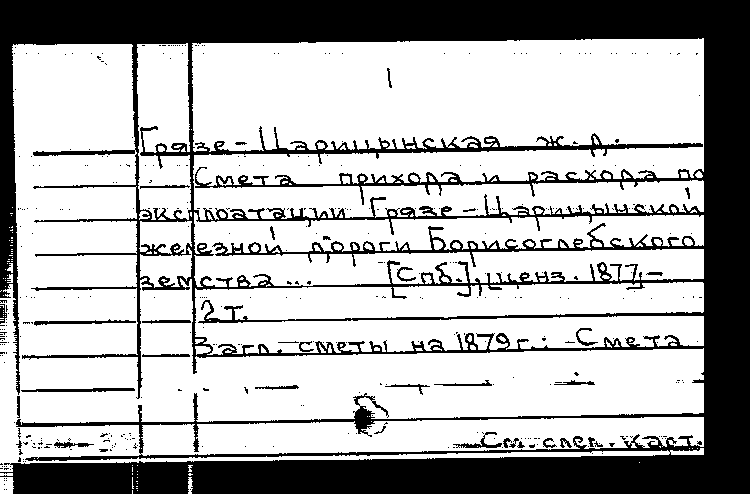 Грязе-Царицынская ж. д.
Смета прихода и расхода по
эксплоатации Грязе-Царицынской
железной дороги Борисоглебского
земства ... [Спб.], ценз. 1877,-
2 т.
Загл. сметы на 1879 г.: Смета
См. след. карт.